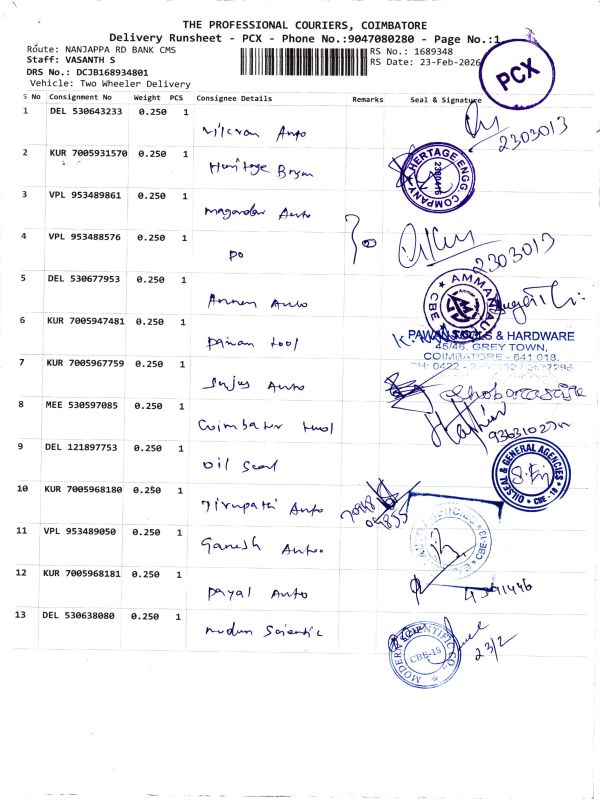 THE PROFESSIONAL COURIERS, COIMBATORE
Delivery Runsheet - PCX - Phone No.:9047080280 - Page No.:1
Route: NANJAPPA RD BANK CMS
RS No.: 1689348
Staff: VASANTH S
RS Date: 23-Feb-2026
DRS No.: DCJB168934801
Vehicle: Two Wheeler Delivery
PCX
S No Consignment No Weight PCS Consignee Details Remarks Seal & Signature
1 DEL 530643233 0.250 1
2303013
2 KUR 7005931570 0.250 1 Heritage
HERTAGE ENGG COMPANY
3 VPL 953489861 0.250 1 Auto
4 VPL 953488576 0.250 1 Do
2303013
5 DEL 530677953 0.250 1 Auto
AMMAN AUTO CBE
6 KUR 7005947481 0.250 1 Pawan tool
PAWAN TOOLS & HARDWARE
45/46, GREY TOWN,
COIMBATORE - 641 018.
PH: 0422 -
7 KUR 7005967759 0.250 1 Auto
8 MEE 530597085 0.250 1 Coimbator tool
9 DEL 121897753 0.250 1 Oil Seal
OILSEAL & GENERAL AGENCIES CBE-18
10 KUR 7005968180 0.250 1 Tirupathi Auto
11 VPL 953489050 0.250 1 Ganesh Auto
CBE-18
12 KUR 7005968181 0.250 1 Payal Auto
13 DEL 530638080 0.250 1 Modern Scientific
MODERN SCIENTIFIC CO.
CBE-18
23/2